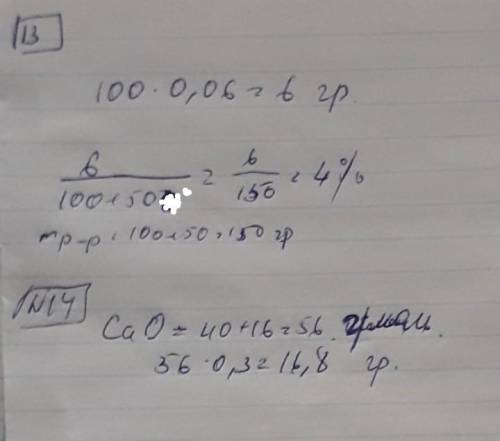 13
100 · 0,06 = 6 гр.
6 / 100+50 = 6 / 150 = 4%
mр-р = 100+50 = 150 гр
N14
CaO = 40+16=56 г/моль.
56 · 0,3 = 16,8 гр.